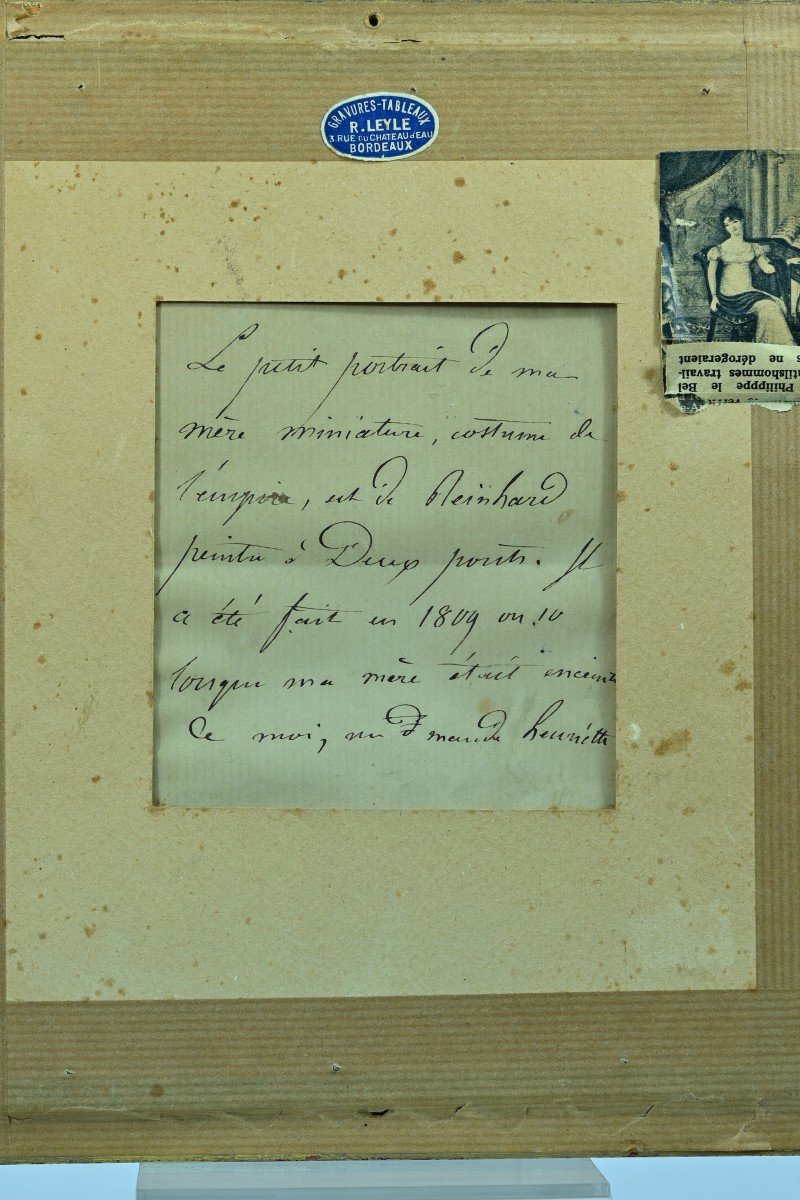 GRAVURES-TABLEAUX
R. LEYLE
3, RUE DU CHATEAU d'EAU
BORDEAUX
Le petit portrait de ma
mère miniature, costume de
l'empire, est de Reinhard
peintre à Deux ponts. Il
a été fait en 1809 ou 10
lorsque ma mère était enceinte
De moi,
henriette
Philippe le Bel
ntilshommes travail-
s ne dérogeraient